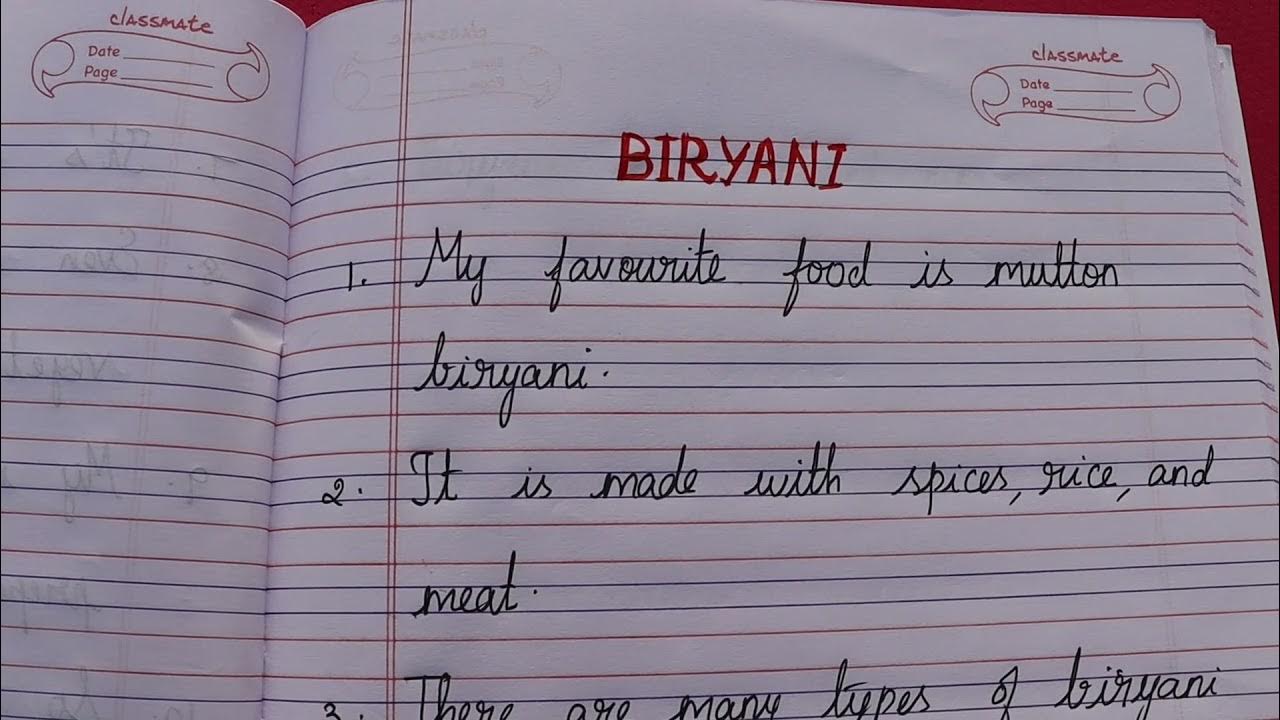 classmate
Date
Page
classmate
Date
Page
BIRYANI
1. My favourite food is mutton
biryani.
2. It is made with spices, rice, and
meat.
3. There are many types of biryani